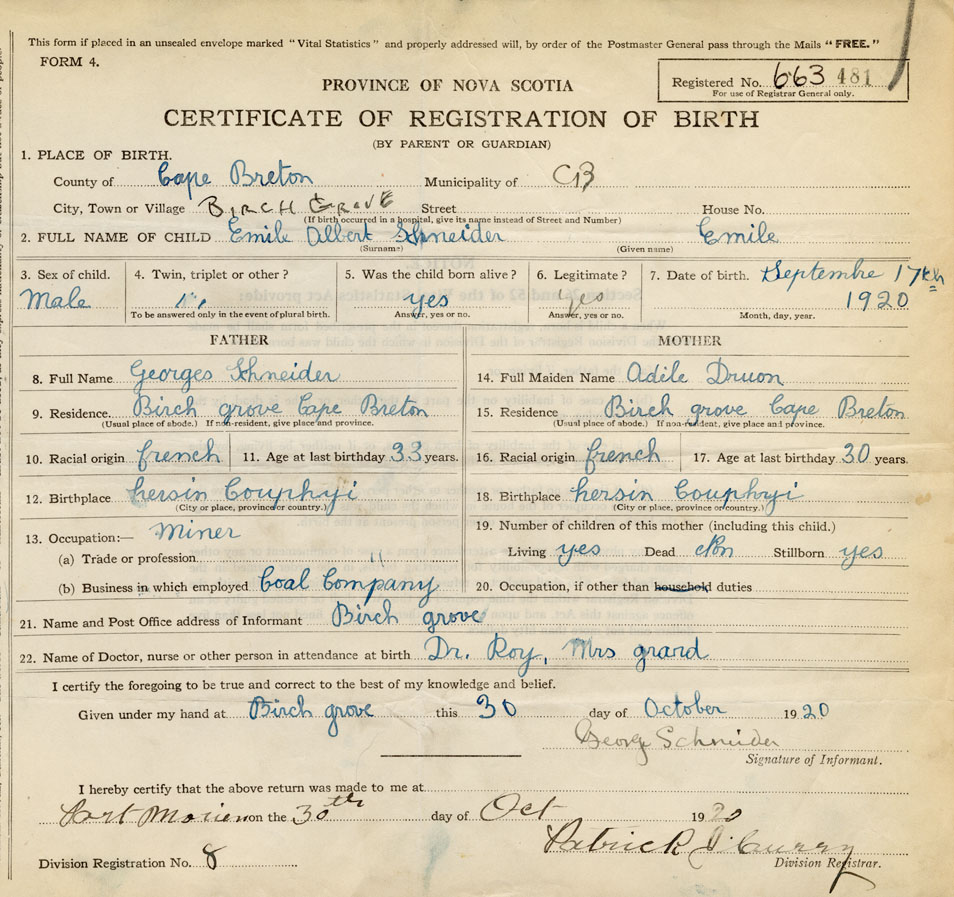 This form if placed in an unsealed envelope marked "Vital Statistics" and properly addressed will, by order of the Postmaster General pass through the Mails "FREE."
FORM 4.
Registered No. 663 481
For use of Registrar General only.
PROVINCE OF NOVA SCOTIA
CERTIFICATE OF REGISTRATION OF BIRTH
(BY PARENT OR GUARDIAN)
1. PLACE OF BIRTH.
County of Cape Breton Municipality of CB
City, Town or Village BIRCH GROVE Street House No.
(If birth occurred in a hospital, give its name instead of Street and Number)
2. FULL NAME OF CHILD Emile Albert Schneider Emile
(Surname) (Given name)
3. Sex of child. 4. Twin, triplet or other? 5. Was the child born alive? 6. Legitimate? 7. Date of birth. Septembre 17th
Male yes yes 1920
To be answered only in the event of plural birth. Answer, yes or no. Answer, yes or no. Month, day, year.
FATHER MOTHER
8. Full Name Georges Shneider 14. Full Maiden Name Adile Druon
9. Residence. Birch grove Cape Breton 15. Residence Birch grove Cape Breton
(Usual place of abode.) If non-resident, give place and province. (Usual place of abode.) If non-resident, give place and province.
10. Racial origin french 11. Age at last birthday 33 years. 16. Racial origin french 17. Age at last birthday 30 years.
12. Birthplace hersin Couphyi 18. Birthplace hersin Couphyi
(City or place, province or country.) (City or place, province or country.)
13. Occupation:— Miner 19. Number of children of this mother (including this child.)
(a) Trade or profession " Living yes Dead Non Stillborn yes
(b) Business in which employed Coal Company 20. Occupation, if other than household duties
21. Name and Post Office address of Informant Birch grove
22. Name of Doctor, nurse or other person in attendance at birth Dr. Roy, Mrs grard
I certify the foregoing to be true and correct to the best of my knowledge and belief.
Given under my hand at Birch grove this 30 day of October 1920
George Schneider
Signature of Informant.
I hereby certify that the above return was made to me at
Port Morien on the 30th day of Oct 1920
Patrick J. Curry
Division Registration No. 8 Division Registrar.